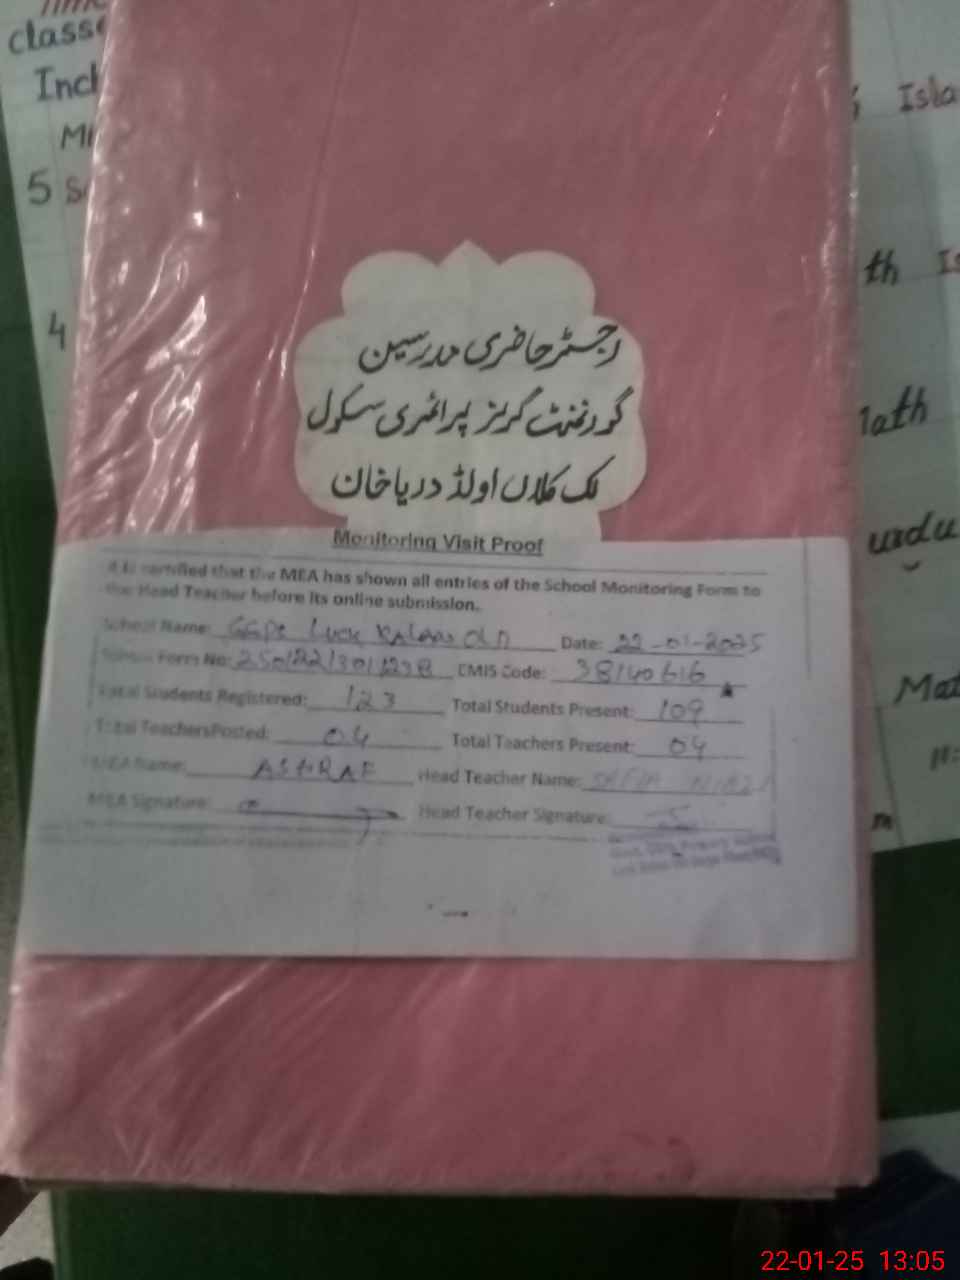 classe
Incl
5 S
4
Isla
th Is
Math
urdu
Mat
رجسٹر حاضری مدرسین
گورنمنٹ گرلز پرائمری سکول
لک کلاں اولڈ دریا خان
Monitoring Visit Proof
It is certified that the MEA has shown all entries of the School Monitoring Form to
the Head Teacher before its online submission.
School Name: GGPS Luck Kalan Old Date: 22-01-2025
School Form No: 25012213011238 EMIS Code: 38140616
Total Students Registered: 123 Total Students Present: 109
Total TeachersPosted: 04 Total Teachers Present: 04
MEA Name: ASHRAF Head Teacher Name: SAFIA
MEA Signature: Head Teacher Signature:
22-01-25 13:05